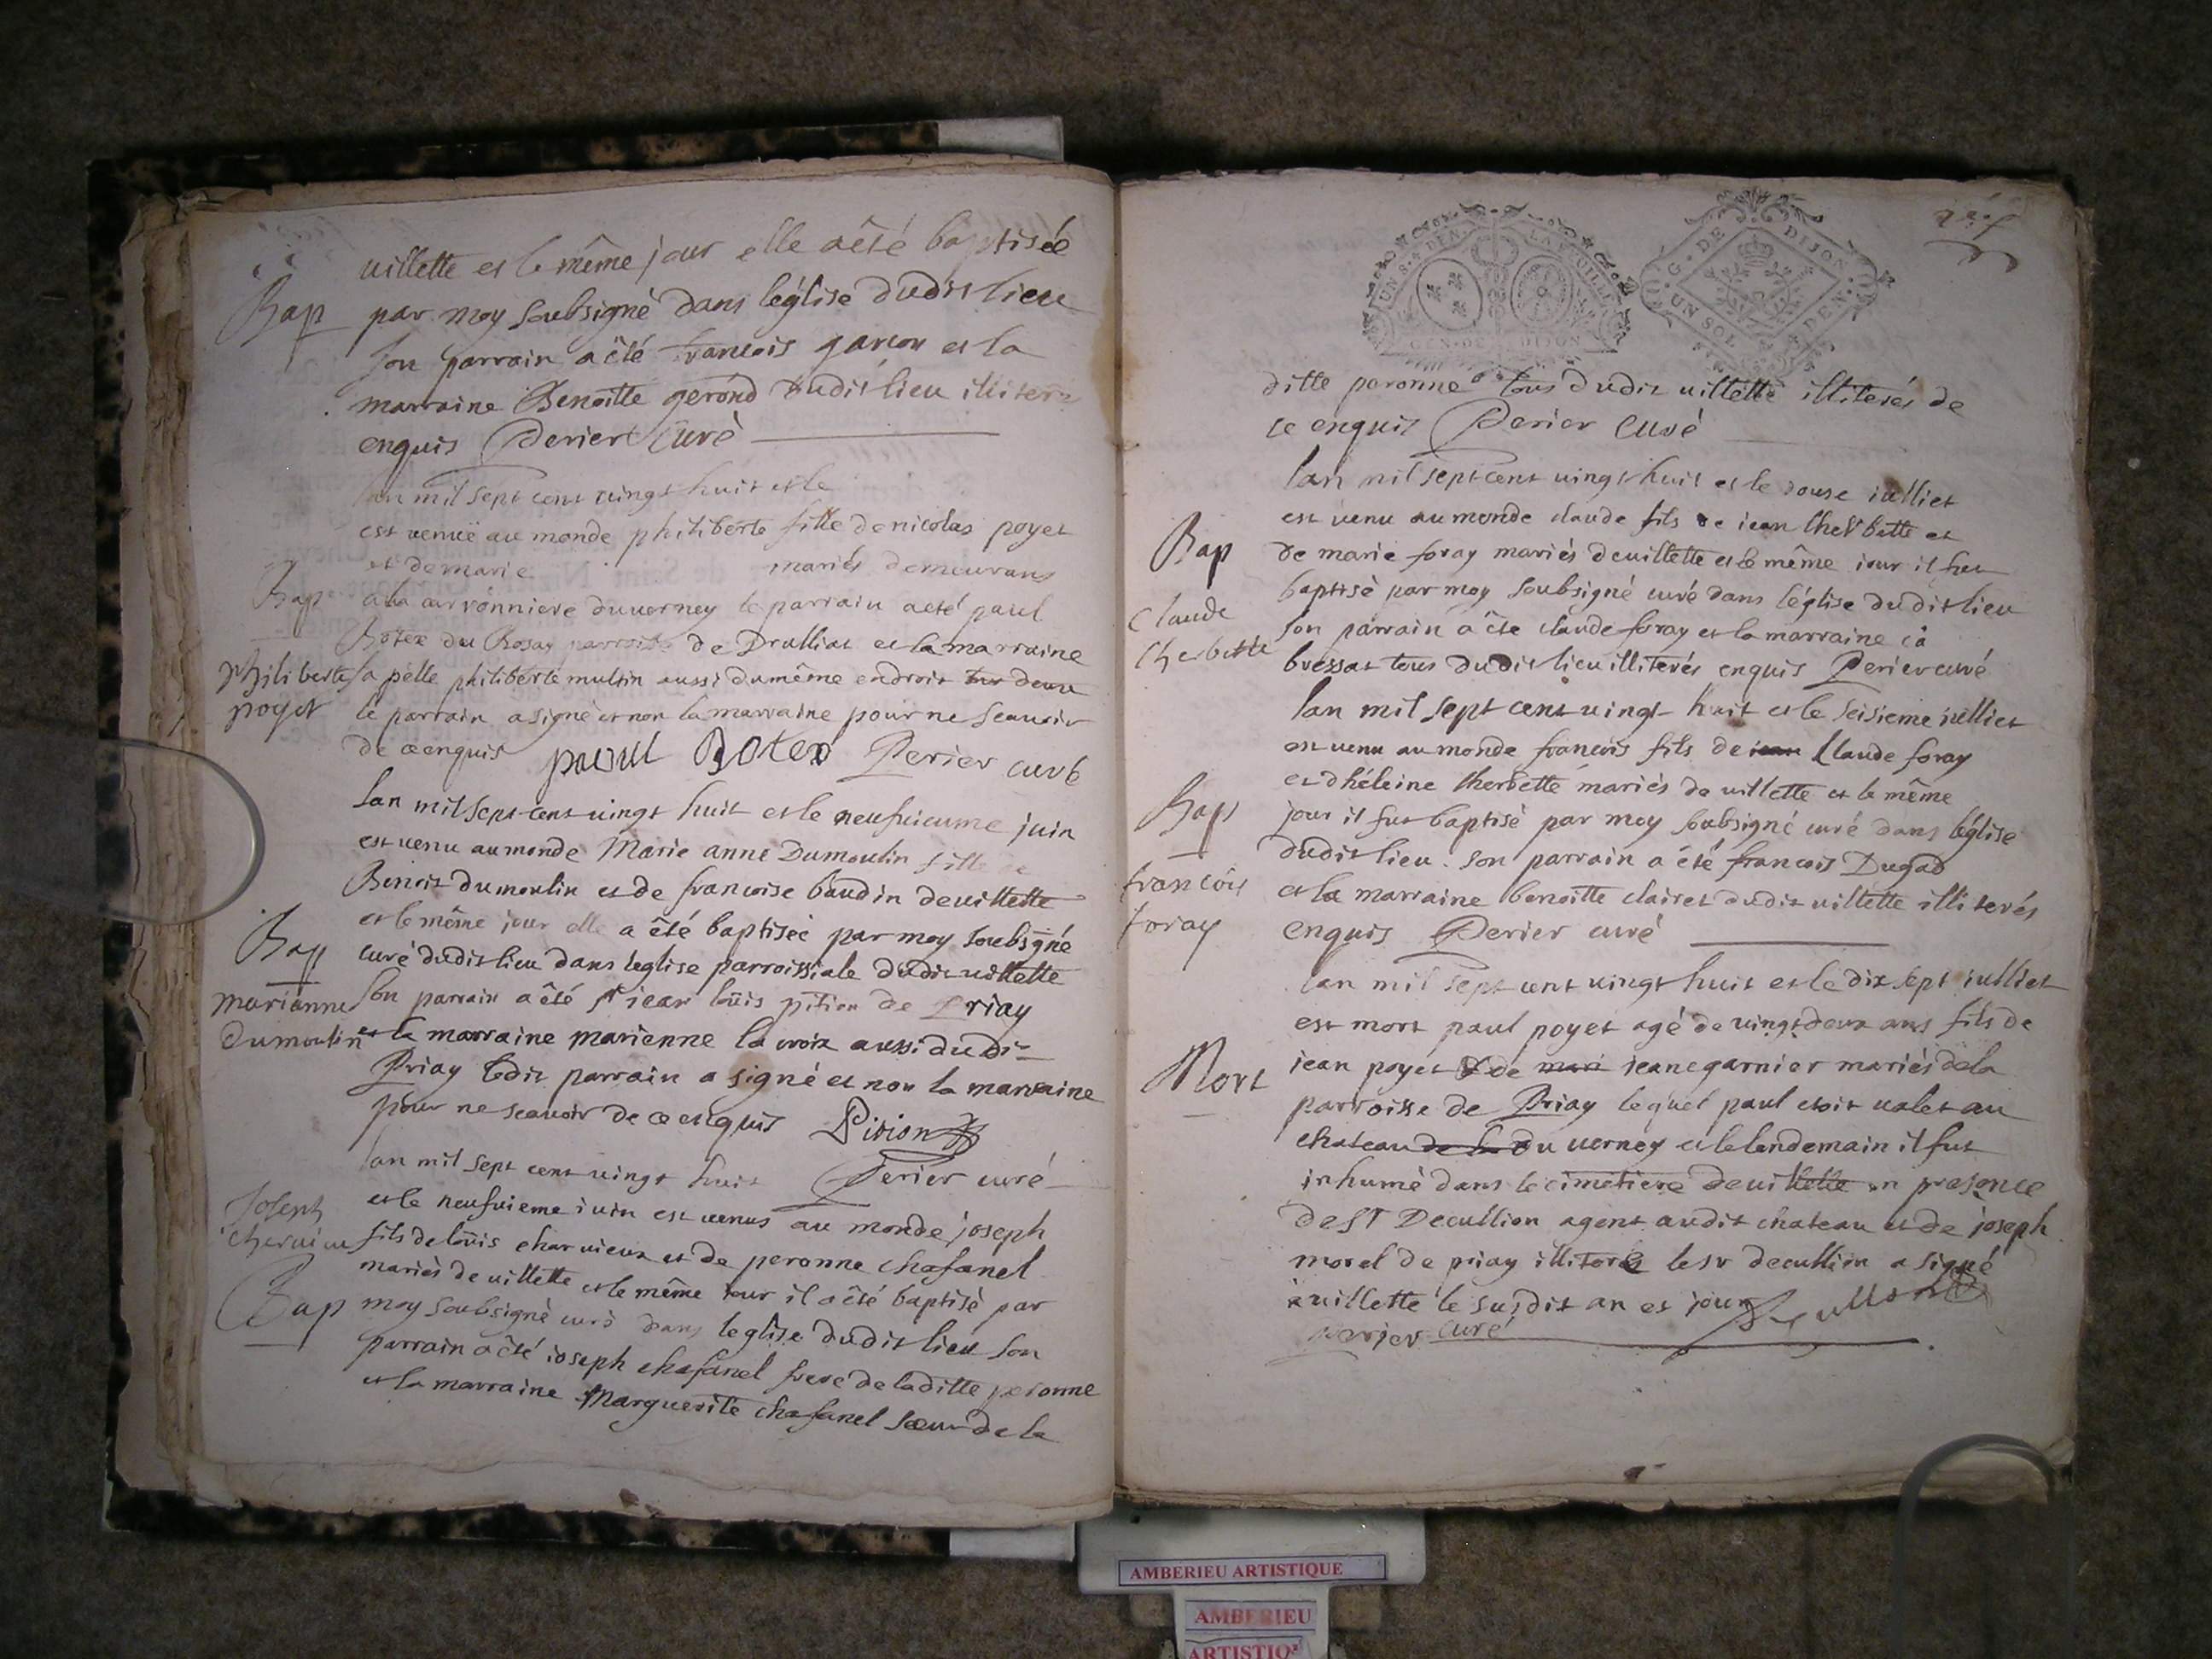 villette et le même jour elle a êté baptisée
Bap par moy soubsigné dans léglise dudit lieu
son parrain a êté francois garcon et la
marraine Benoitte gerond dudit lieu illiterés
enquis Perier Curé
lan mil sept cent vingt huit et le
est venuë au monde philiberte fille de nicolas poyet
et de marie mariés demeurans
Bap a la du verney le parrain a eté paul
Botex du Rosay parroisse de Druilliat et la marraine
philiberte sapelle philiberte multin aussi du même endroit
poyet le parrain a signé et non la marraine pour ne scavoir
de ce enquis paul Botex Perier curé
lan mil sept cent vingt huit et le neufvieume juin
est venu au monde Marie anne Dumoulin fille de
Benoit dumoulin et de francoise baudin de villette
et le même jour elle a êté baptisée par moy soubsigné
Bap curé dudit lieu dans leglise parroissiale dudit villette
marianne Son parrain a êté sr jean loüis pition de Priay
dumoulin et la marraine marienne la croix aussi dudit
Priay ledit parrain a signé et non la marraine
pour ne scavoir de ce enquis Pition
lan mil sept cent vingt huit Perier curé
et le neufvieme iuin est venus au monde joseph
Joseph
fils de loüis charvieux et de peronne chafanel
mariés de villette et le même iour il a êté baptisé par
Bap moy soubsigné curé dans leglise dudit lieu son
parrain a êté ioseph chafanel frere de laditte peronne
et la marraine Marguerite chafanel sœur de la
UN S. 4 DEN. LA FEUILLE
GEN. DE DIJON
G. DE DIJON
UN SOL DEN.
ditte peronne tous dudit villette illiterés de
ce enquis Perier Curé
lan mil sept cent vingt huit et le douse iulliet
est venu au monde claude fils de iean Cherbette et
Bap de marie foray mariés de villette et le même iour il fut
baptisé par moy soubsigné curé dans léglise dudit lieu
Claude son parrain a êté claude foray et la marraine
Cherbette bressat tous dudit lieu illiterés enquis Perier curé
lan mil sept cent vingt huit et le seisieme iulliet
est venu au monde francois fils de iean Claude foray
et dhéleine Cherbette mariés de villette et le même
Bap jour il fut baptisé par moy soubsigné curé dans léglise
dudit lieu. son parrain a été francois Dugad
francois et la marraine benoitte clairet dudit villette illiterés
foray enquis Perier curé
lan mil sept cent vingt huit et le dix sept iulliet
est mort paul poyet agé de vingt deux ans fils de
Mort jean poyet & de mari ieane garnier mariés de la
parroisse de Priay lequel paul etoit valet au
chateau de la du verney et le lendemain il fut
inhumé dans le cimetiere de villette en presence
de sr Decullion agent audit chateau et de joseph
morel de priay illiterés le sr decullion a signé
a villette le susdit an et jour Decullion
perier curé
AMBERIEU ARTISTIQUE
AMBERIEU
ARTISTIQ